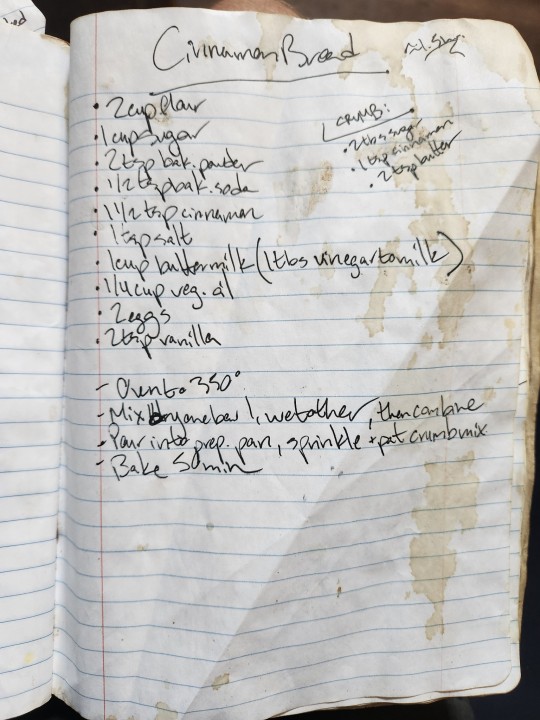 Cinnamon Bread
• 2 cup flour
• 1 cup sugar
• 2 tsp bak. powder
• 1/2 tsp bak. soda
• 1 1/2 tsp cinnamon
• 1 tsp salt
• 1 cup buttermilk (1 tbs vinegar to milk)
• 1/4 cup veg. oil
• 2 eggs
• 2 tsp vanilla
CRUMB:
• 2 tbs sugar
• 1 tsp cinnamon
• 2 tsp butter
- Oven to 350°
- Mix dry one bowl, wet other, then combine
- Pour into prep. pan, sprinkle + pat crumb mix
- Bake 50 min